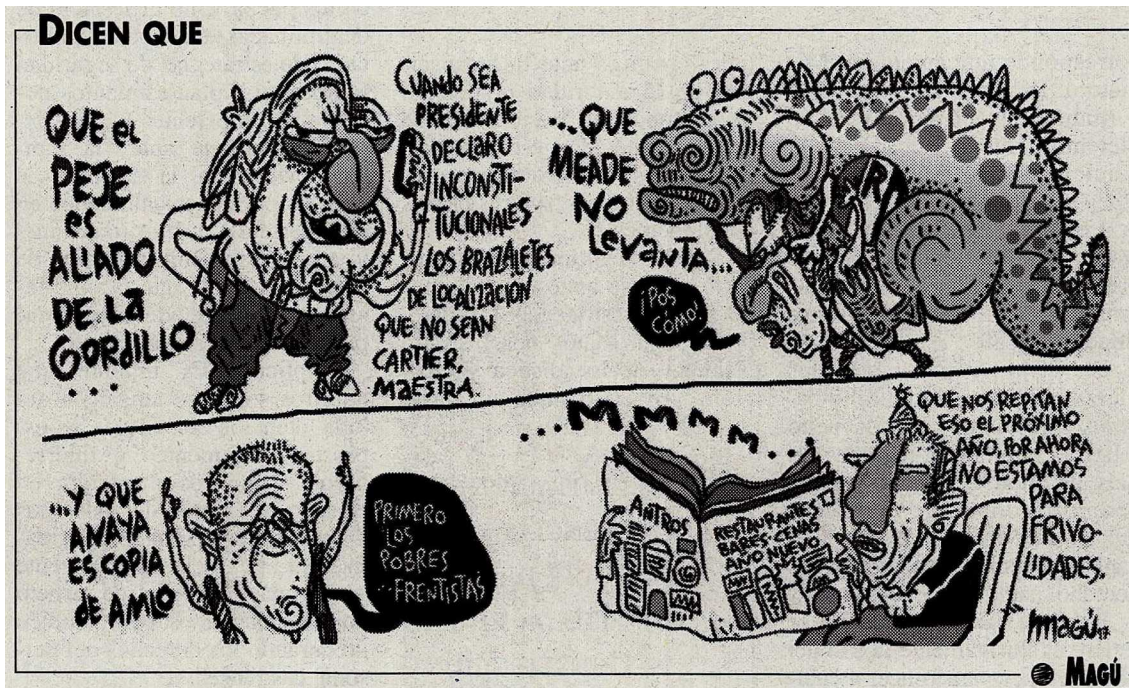 DICEN QUE
QUE el
PEJE
es
ALIADO
DE La
GORdILLO
...
CUANDO SEA
PRESIDENTE
DECLARO
INCONSTI-
TUCIONALES
LOS BRAZALETES
DE LOCALIZACION
QUE NO SEAN
CARTIER,
MaESTRA.
...QUE
MEADE
NO
LevaNTA...
¡POS
CÓMO!
...Y QUE
ANAYA
ES COPIA
de AMLO
PRIMERO
LOS
POBRES
...FRENTISTAS
...MMMM...
ANTROS
RESTAURANTES
BARES-CENAS
AÑO NUEVO
QUE NOS REPITAN
ESO EL PRÓXIMO
AÑO, POR AHORA
NO ESTAMOS
PARA
FRIVO-
LIDADES.
magú17
MAGÚ